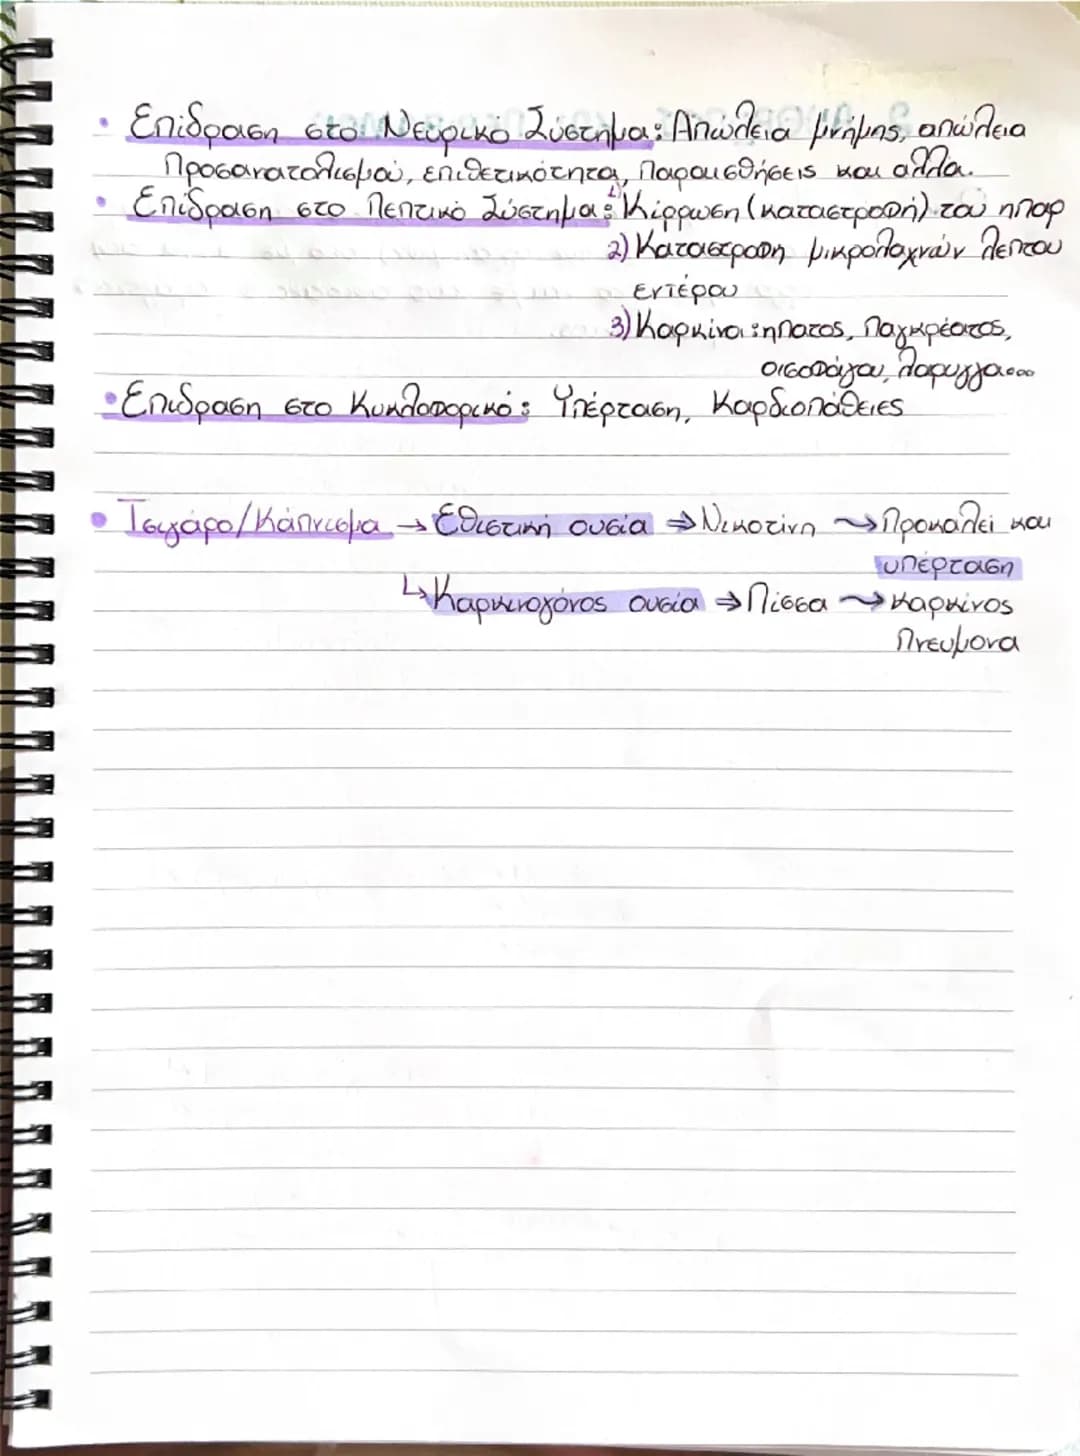 • Επίδραση στο Νευρικό Σύστημα: Απώλεια μνήμης, απώλεια
Προσανατολισμού, επιθετικότητα, Παραισθήσεις και αλλα.
• Επίδραση στο Πεπτικό Σύστημα: 1) Κίρρωση (καταστροφή) του ηπαρ
2) Καταστροφη μικρολαχνών λεπτου
εντέρου
3) Καρκίνοι: ηπατος, Παγκρέατος,
οισοφάγου, λαρυγγα....
• Επιδραση στο Κυκλοφορικό: Υπέρταση, Καρδιοπάθειες
• Τσιγάρο/Κάπνισμα → Εθιστική ουσία ⇒ Νικοτίνη ⇝ Προκαλεί και
υπέρταση
↳ Καρκινογόνος ουσία ⇒ Πίσσα ⇝ καρκίνος
Πνευμονα